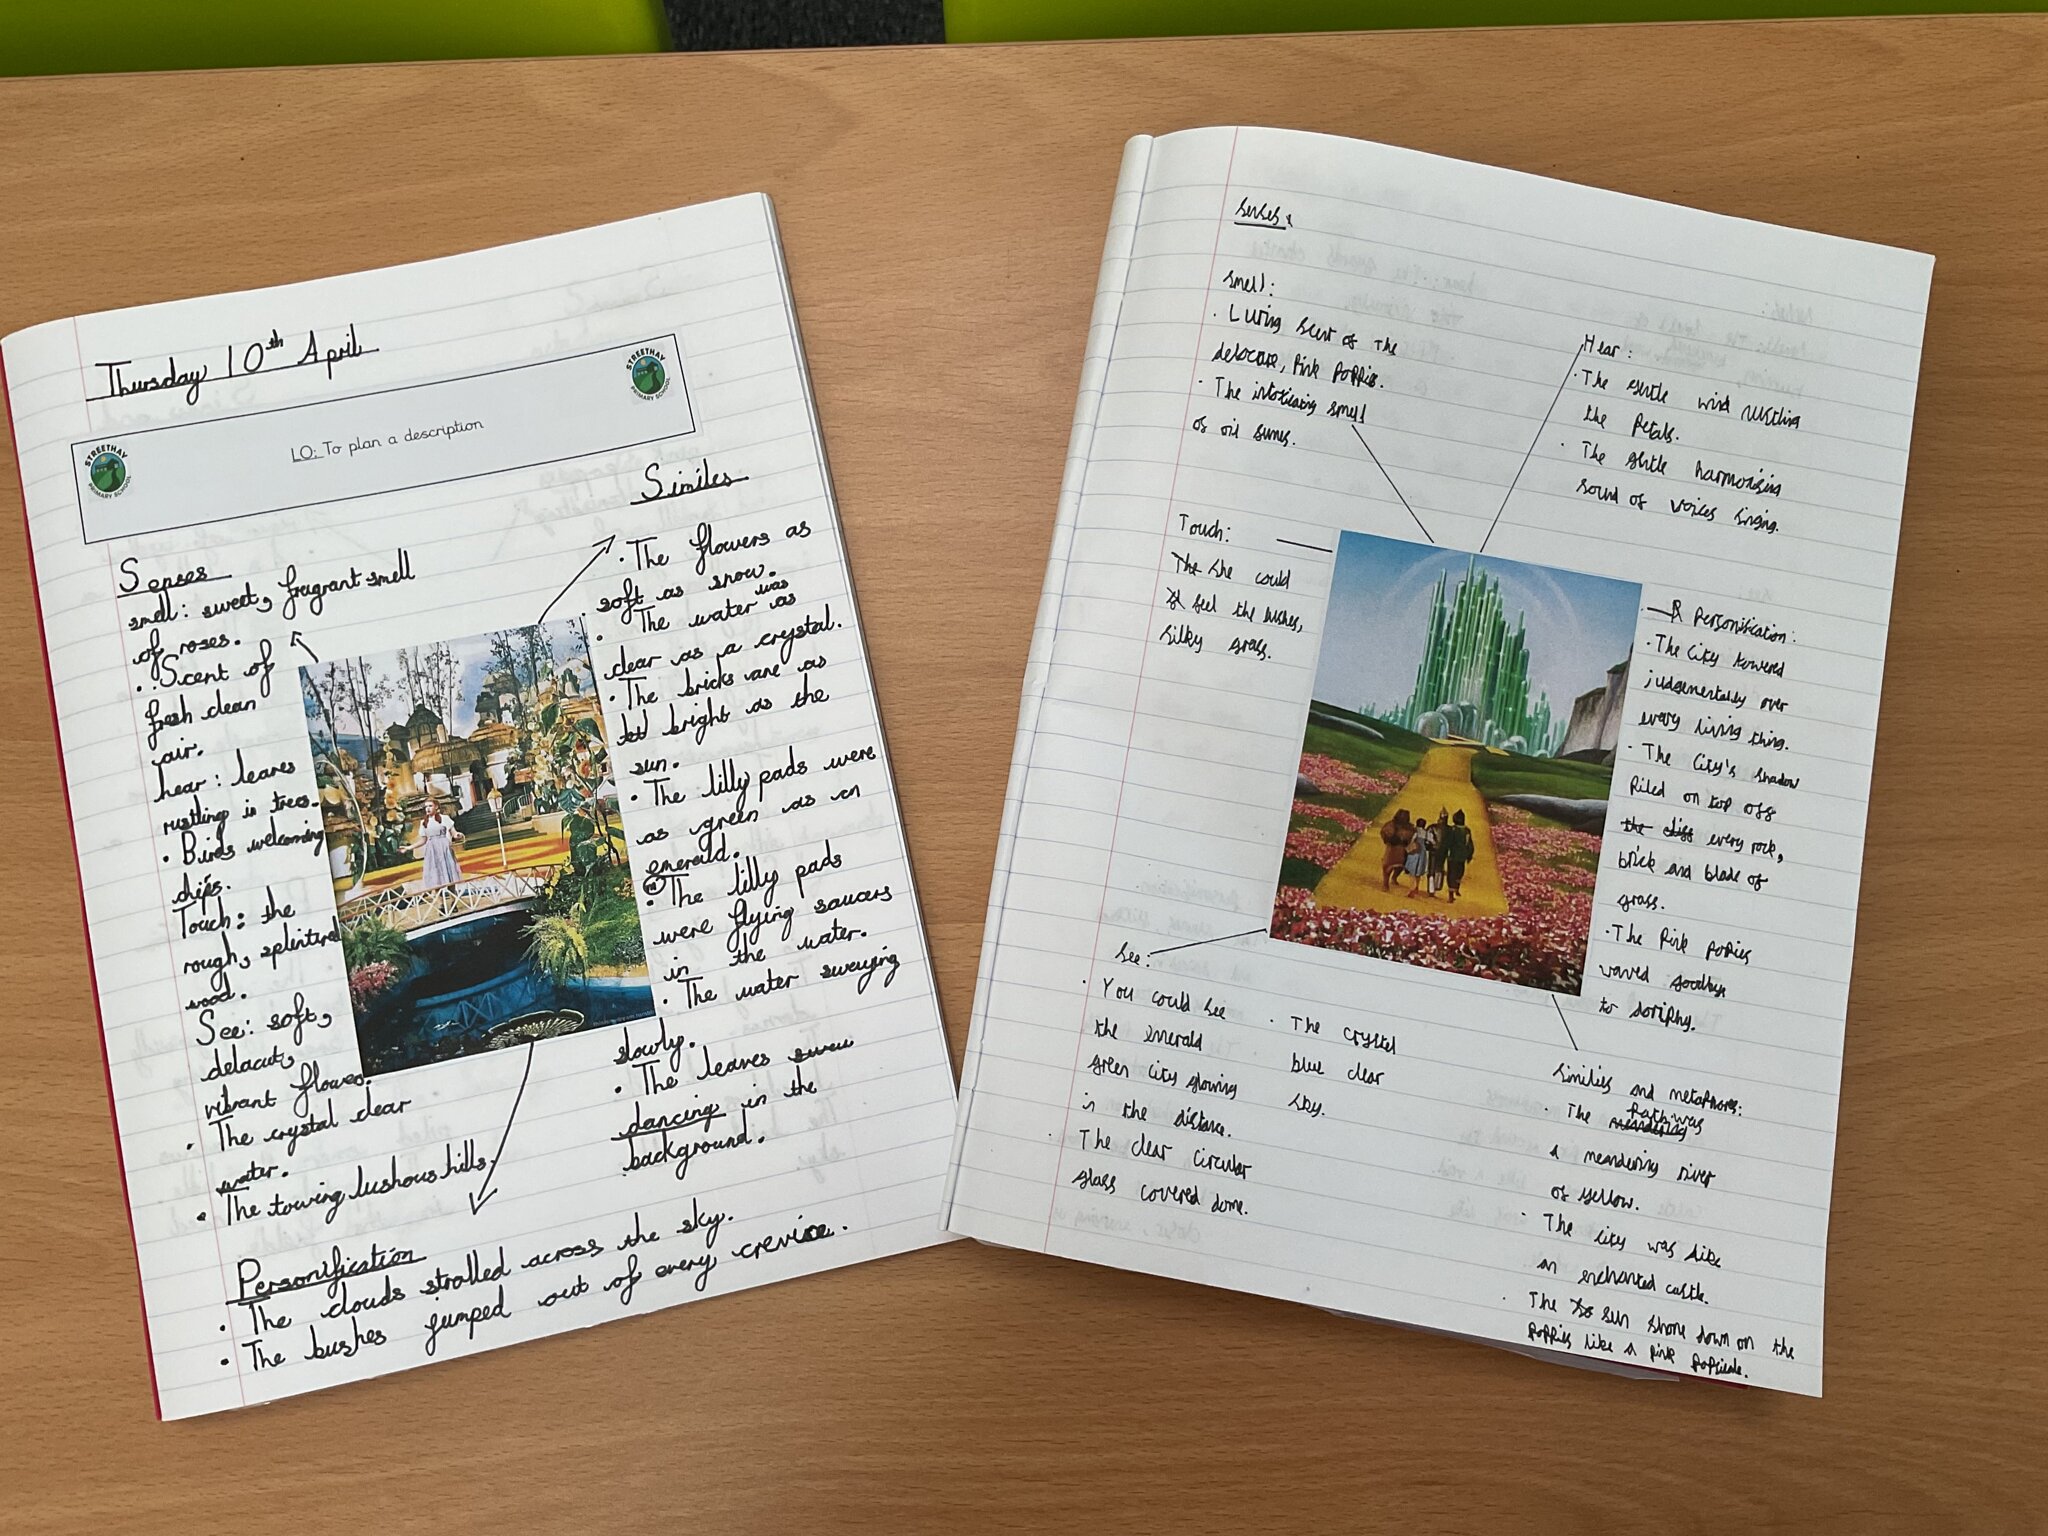 Thursday 10th April
STREETHAY
PRIMARY SCHOOL
LO: To plan a description
STREETHAY
PRIMARY SCHOOL
Senses
smell: sweet, fragrant smell
of roses.
• Scent of
fresh clean
air.
hear: leaves
rustling in trees.
• Birds welcoming
Touch: the
rough, splintered
wood.
See: soft,
delacut,
vibrant flower.
• The crystal clear
water.
• The towing lushous hills.
Similes
• The flowers as
soft as snow.
• The water was
clear as a crystal.
• The bricks are as
bright as the
sun.
• The lilly pads were
as green as an
emerald.
• The lilly pads
were flying saucers
in the water.
• The water swaying
slowly.
• The leaves
dancing in the
background.
Personification
• The clouds strolled across the sky.
• The bushes jumped out of every crevice.
senses.
smell:
• Luring scent of the
pink poppies.
• The intoxicating smell
of oil
Touch:
The She could
feel the lushes,
silky grass.
Hear:
• The gentle wind rustling
the petals.
• The gentle harmonising
sound of voices singing.
Personification:
• The City towered
judgementally over
every living thing.
• The City's shadow
Piled on top off
the every rock,
brick and blade of
grass.
• The Pink poppies
waved goodbye
to
See:
• You could see
the emerald
green city glowing
in the distance.
• The clear circular
glass covered dome.
• The crystel
blue clear
sky.
Similies and metaphors:
• The path was
meandering
a meandering river
of yellow.
• The city was like
an enchanted castle.
• The sun shone down on the
poppies like a pink popsicle.